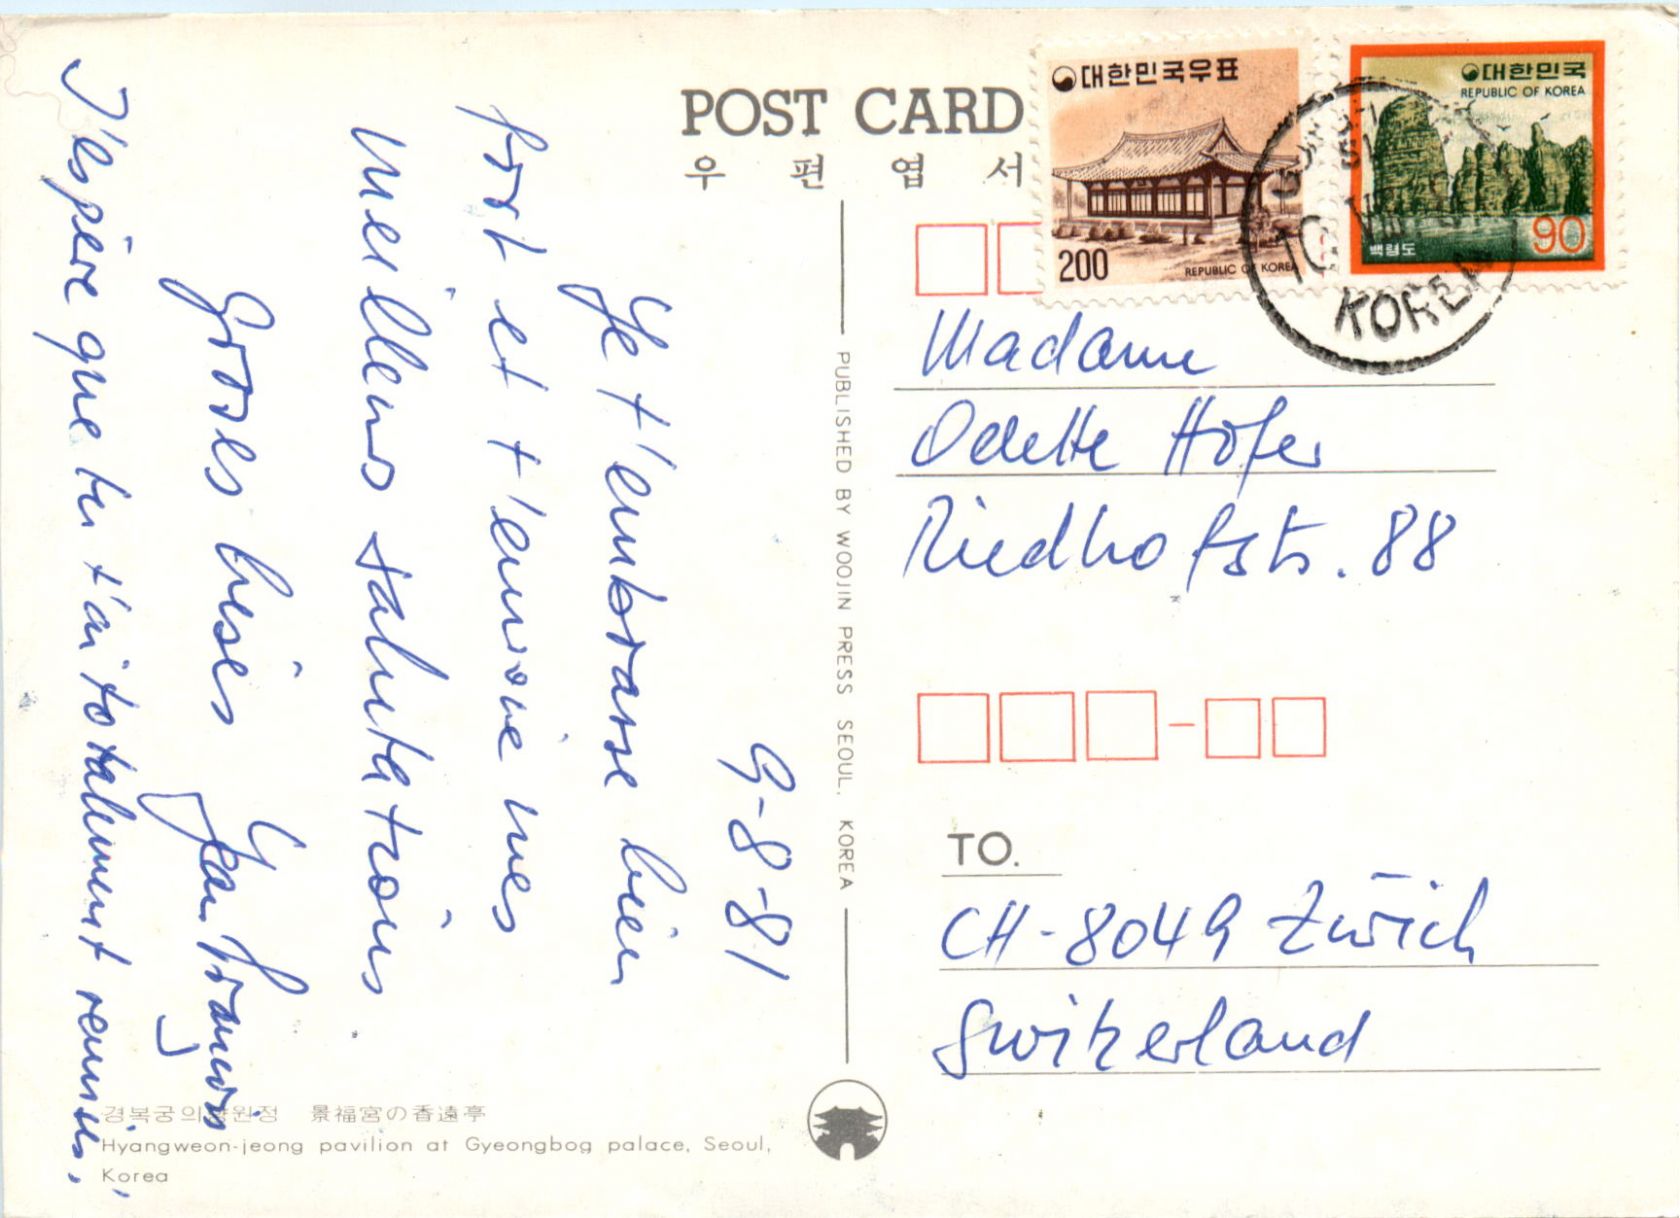 POST CARD
우 편 엽 서
대한민국우표
200
REPUBLIC OF KOREA
대한민국
REPUBLIC OF KOREA
백령도
90
KOREA
Madame
Odette Hofer
Riedhofstr. 88
TO.
CH-8049 Zürich
Switzerland
PUBLISHED BY WOOJIN PRESS SEOUL, KOREA
9-8-81
Je t'embrasse bien
fort et t'envoie mes
meilleurs salutations
Grosses bises Jean François
J'espère que tu t'ai totalement remis.
경복궁의향원정 景福宮の香遠亭
Hyangweon-jeong pavilion at Gyeongbog palace, Seoul,
Korea